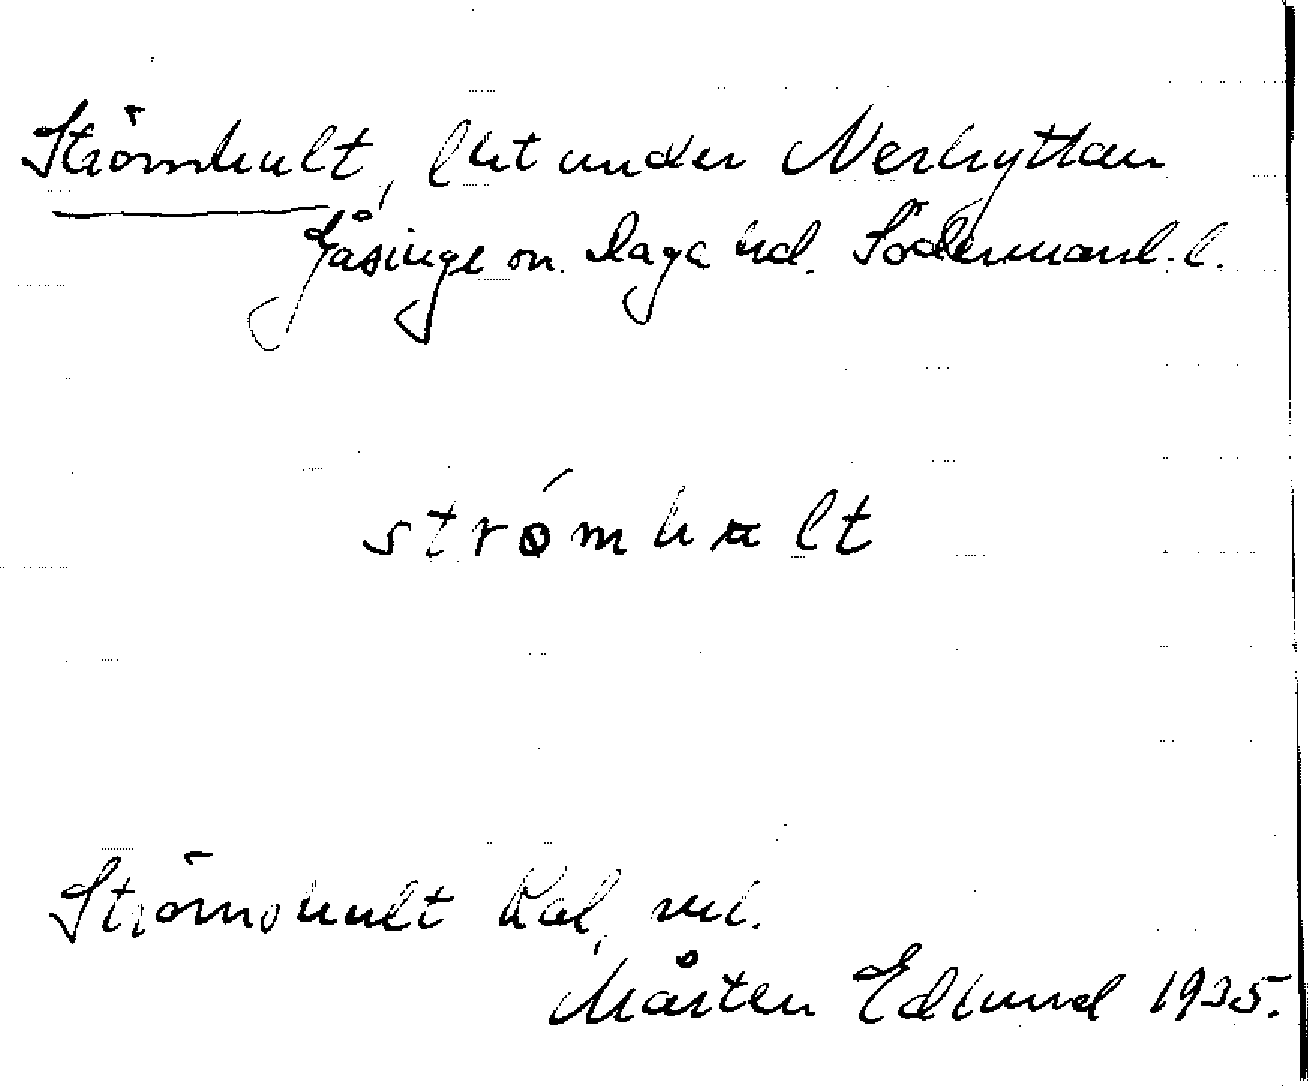 Strömhult, lht under Nerhyttan
Gåsinge sn. Daga hd. Södermanl. l.
strǿmhult
Strömshult Kal, vid.
Mårten Edlund 1925.